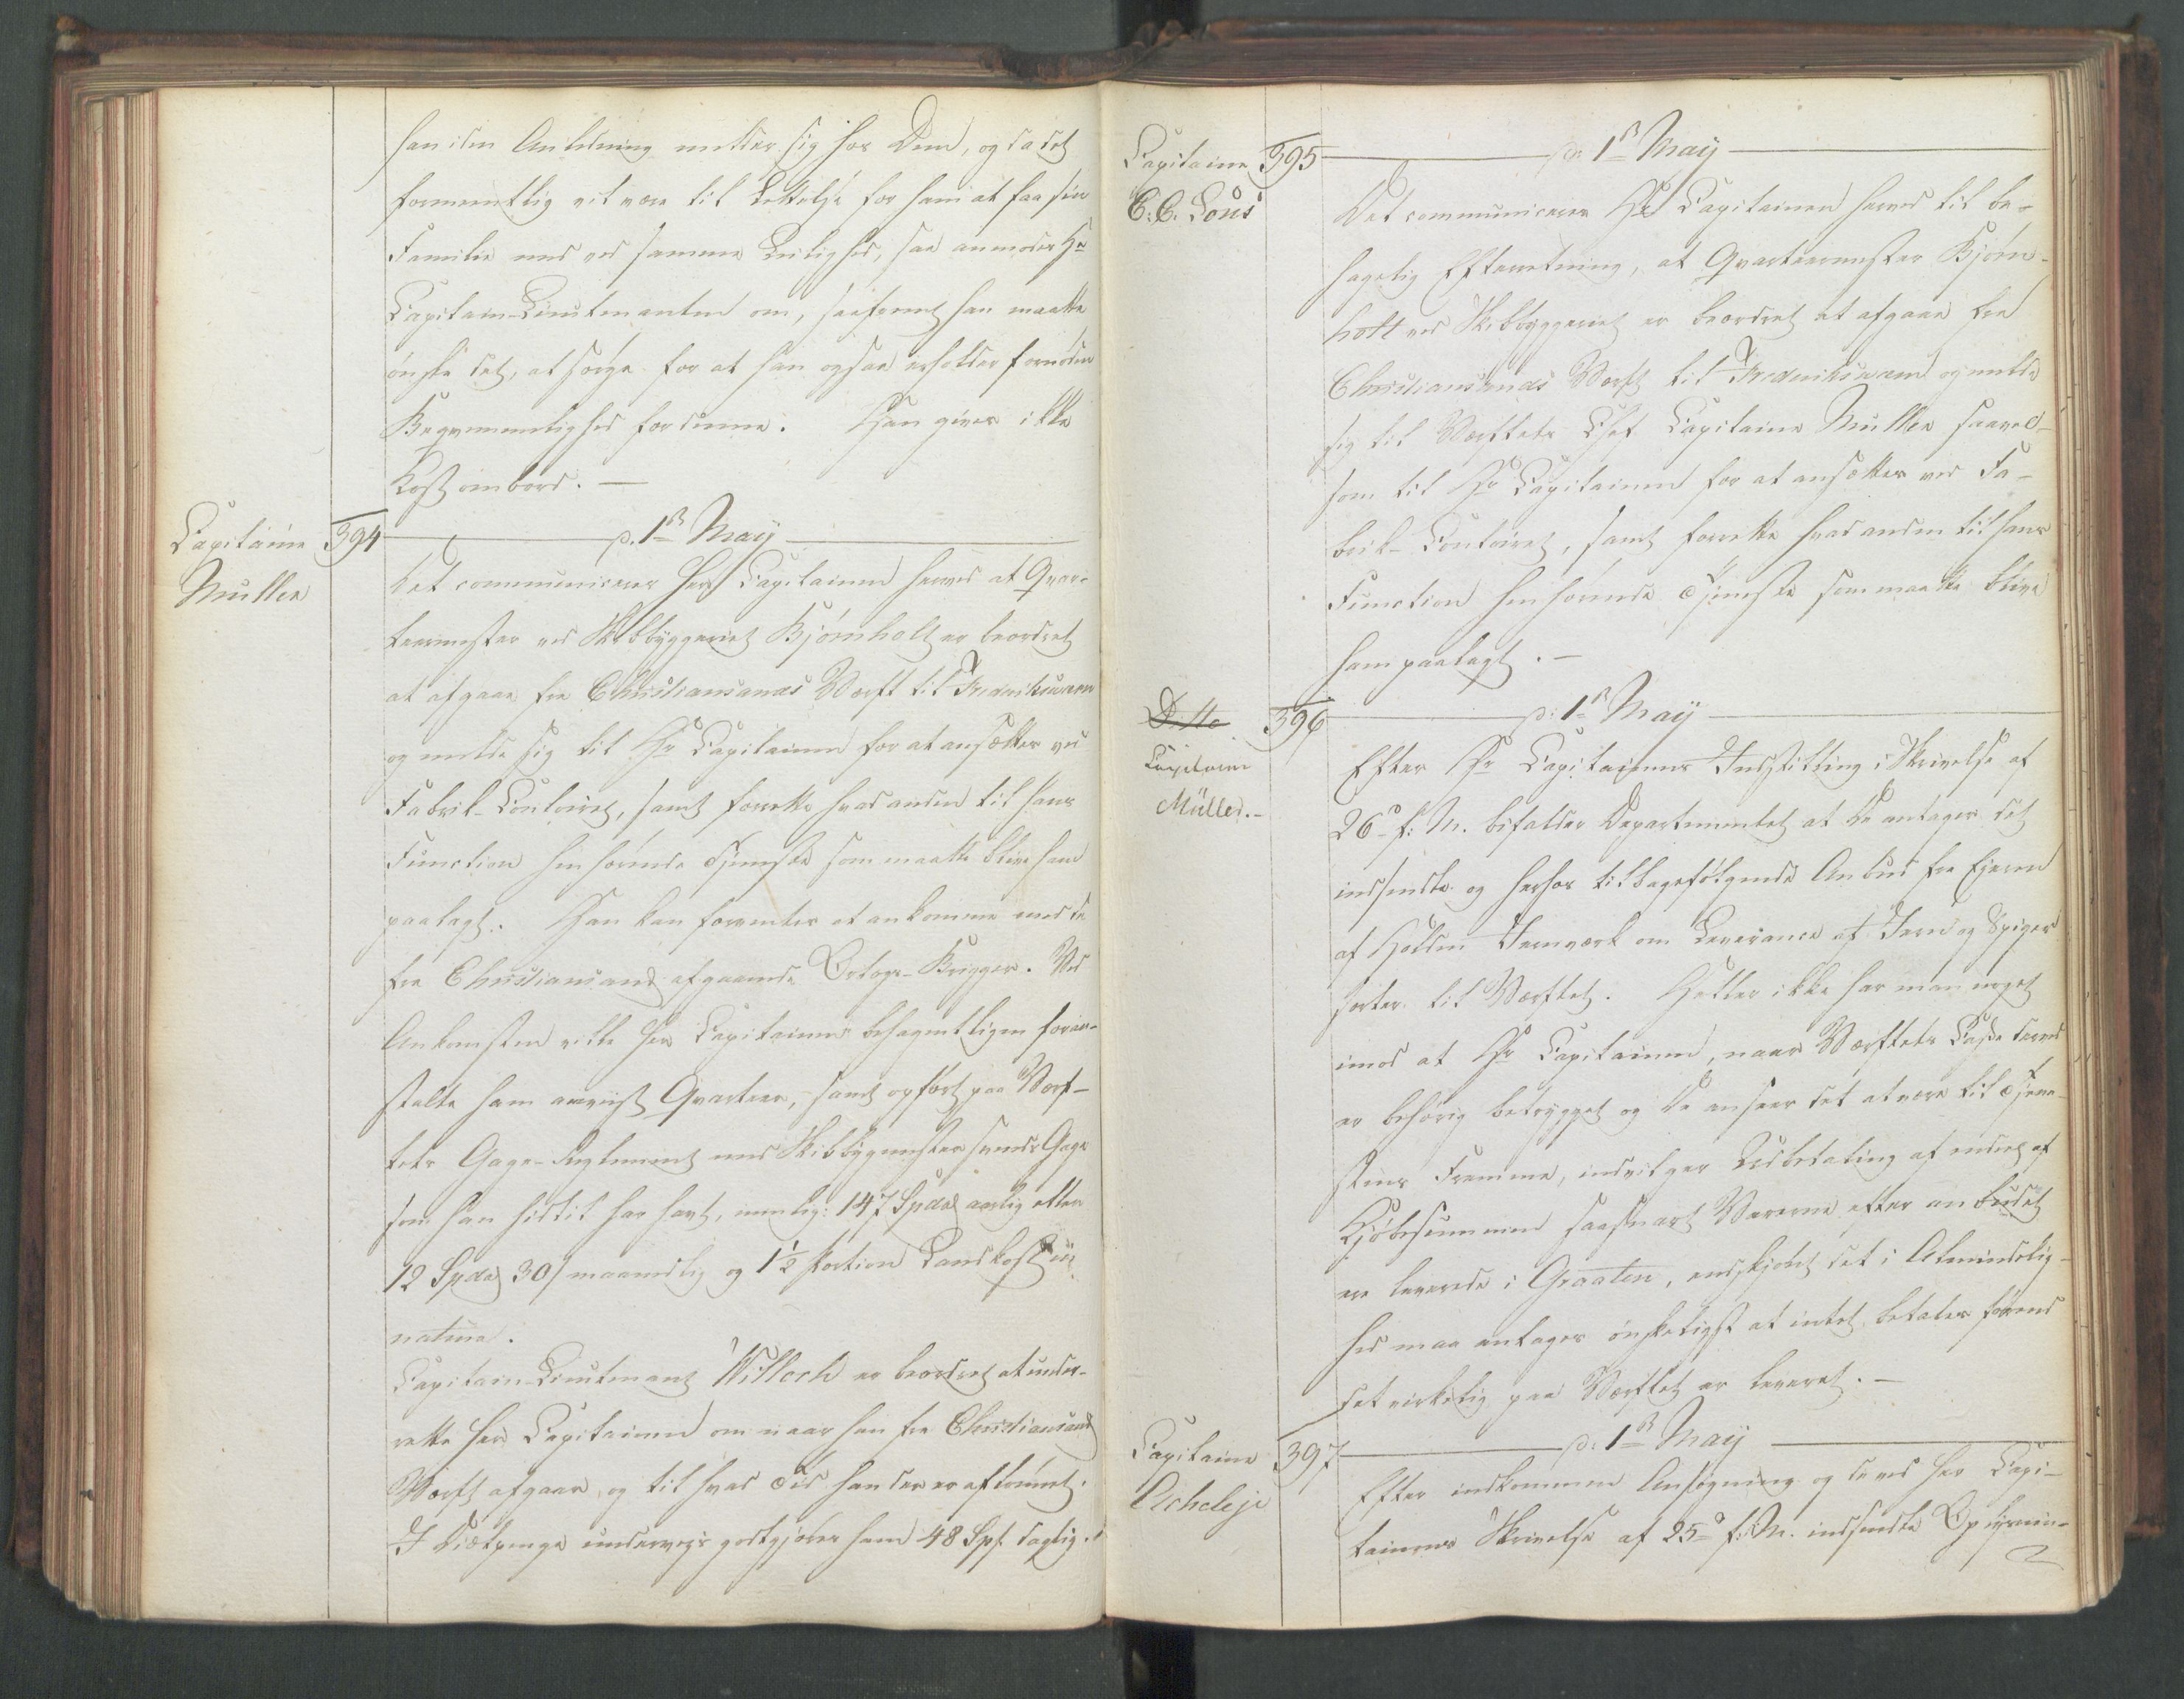 han i den Anledning melder sig hos Dem, og da det
formeentlig vil være til Lettelse for ham at faa sin
Familie med ved samme Leilighed, saa anmodes Hr
Capitain-Lieutenanten om, saafremt han maatte
ønske det, at sørge for at han ogsaa erholder fornøden
Beqvemmelighed for denne. Han gives ikke
Kost ombord. —
Capitaine 394 d. 1ste May
Müller
Det communiceres Herr Capitainen herved at Qvar-
teermester ved Skibbyggeriet Bjørnholt er beordret
at afgaae fra Christiansands Værft til Frederiksværn
og melde sig til Hr Capitainen for at ansættes ved
Fabrik-Contoiret, samt forrette hvad anden til hans
Function henhørende Tjeneste som maatte blive ham
paalagt. Han kan forventes at ankomme med de
fra Christiansand afgaaende Orlogs-Brigger. Ved
Ankomsten ville Herr Capitainen behageligen foran-
stalte ham anviist Qvarteer, samt opført paa Værf-
tets Gage-Reglement med Skibbygmester svends Gage
som han hidtil har havt, nemlig: 147 Spd aarlig eller
12 Spd 30 s maanedlig og 1½ Portion Landkost in
natura.
Capitain-Lieutenant Willoch er beordret at under-
rette Herr Capitainen om naar han fra Christiansands
Værft afgaaer og til hvad Tid han der er aflønnet.
I Diætpenge underveis godtgjøres ham 48 Sps. daglig.
Capitaine 395 d. 1ste May
C. C. Lous
Det communiceres Hr Capitainen herved til be-
hagelig Efterretning, at Qvarteermester Bjørn-
holt ved Skibbyggeriet er beordret at afgaae fra
Christiansands Værft til Frederiksværn og melde
sig til Værftets Chef Capitaine Müller saavel-
som til Hr Capitainen for at ansættes ved Fa-
brik-Contoiret, samt forrette hvad anden til hans
Function henhørende Tjeneste som maatte blive
ham paalagt. —
Ditto 396 d: 1ste May
Capitaine
Müller. -
Efter Hr Capitainens Indstilling i Skrivelse af
26de f: M. bifalder Departementet at De antager det
indsendte og herhos tilbagefølgende Anbud fra Eieren
af Holden Jernværk om Leverance af Jern og Spiger
sorter til Værftet. Heller ikke har man noget
imod at Hr Capitainen, naar Værftets Casse derved
er behørig betrygget og De anseer det at være til Tjene-
stens Fremme, indvilger Udbetaling af endeel af
Kjøbesummen saasnart Varerne efter anbudet
ere leverede i Graaten, endskjøndt det i Almindelig-
hed maa antages ønskeligst at intet betales førend
det virkelig paa Værftet er leveret. —
Capitaine 397 d: 1ste May
Acheleje
Efter indkommen Ansøgning og derved Herr Capi-
tainens Skrivelse af 25de f: M. indsendte